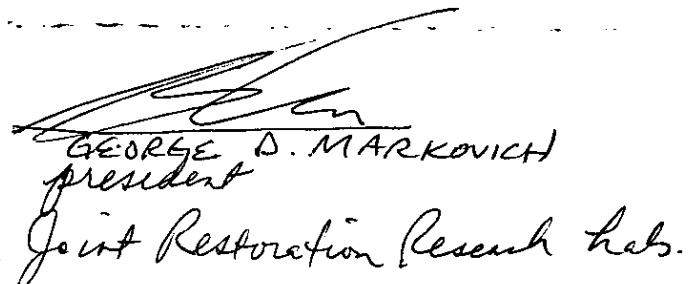 GEORGE D. MARKOVICH
president
Joint Restoration Research Labs.